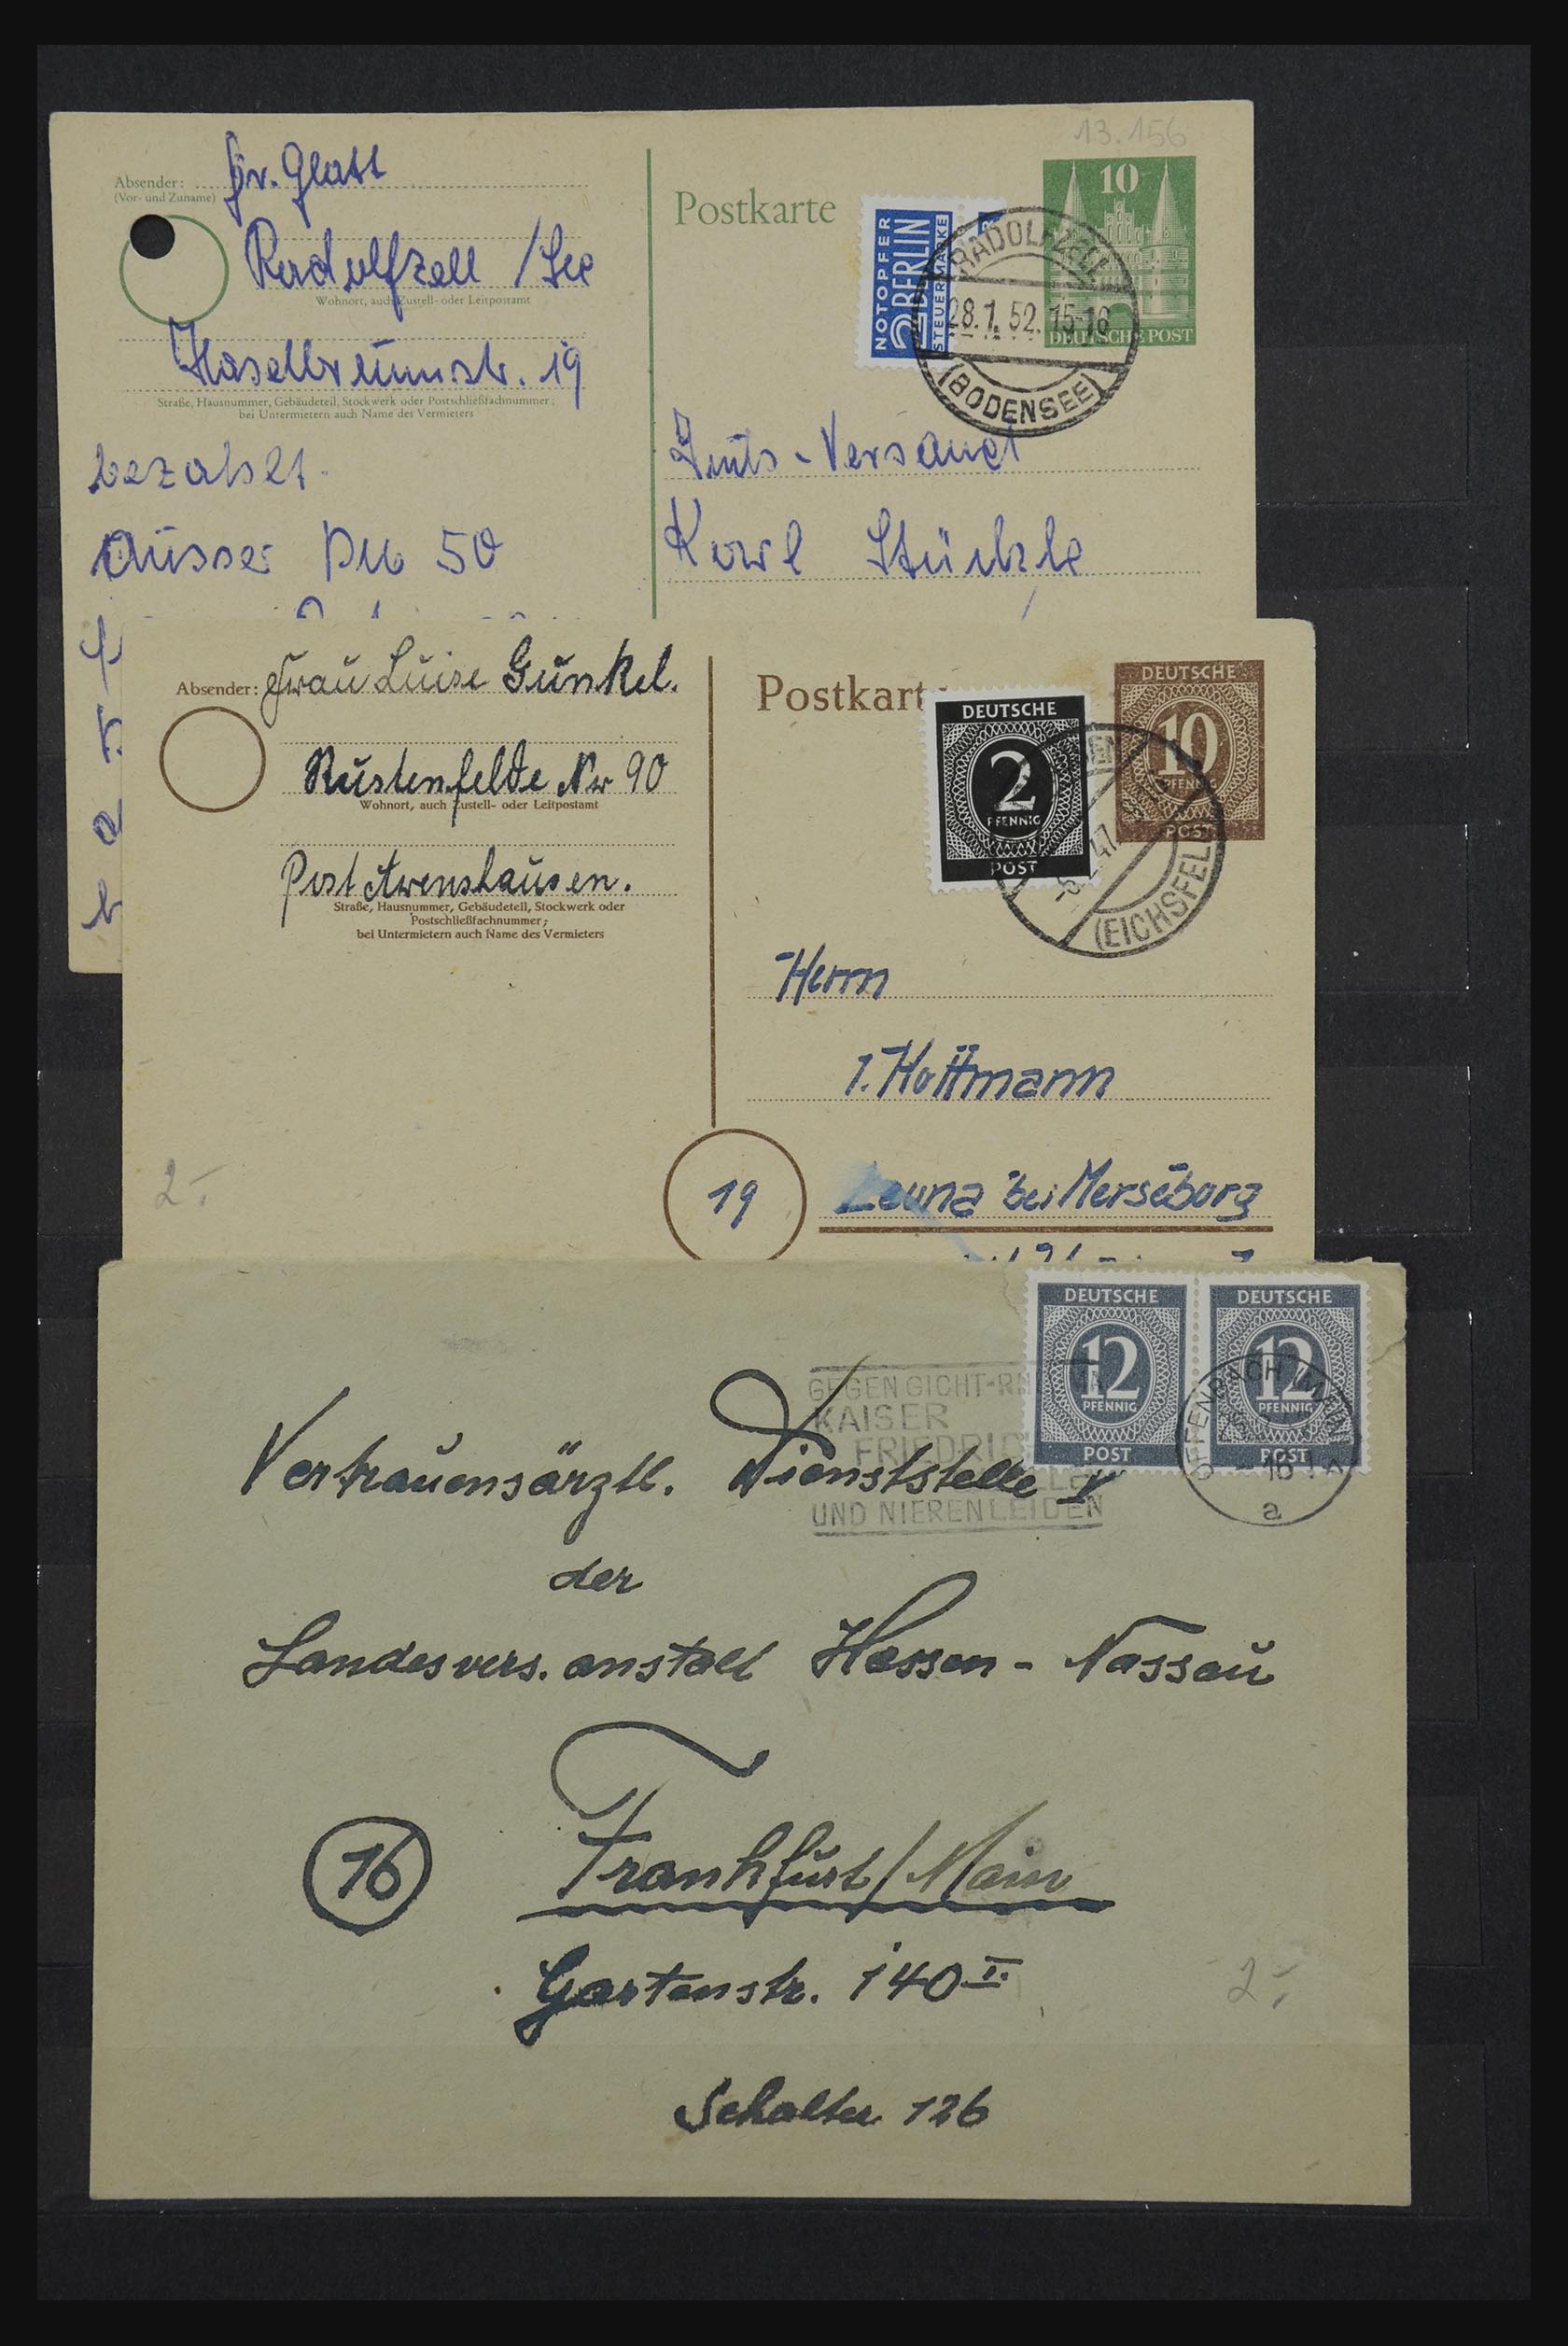 13.156
Absender:
(Vor- und Zuname)
Gr. Glatt
Radolfzell /See
Wohnort, auch Zustell- oder Leitpostamt
Haselbrunnstr. 19
Straße, Hausnummer, Gebäudeteil, Stockwerk oder Postschließfachnummer;
bei Untermietern auch Name des Vermieters
bezahlt.
ausser DM 50
Postkarte
NOTOPFER
2 BERLIN
STEUERMARKE
10
DEUTSCHE POST
RADOLFZELL
28.1.52. 15-16
(BODENSEE)
Versand
Karl
Absender: Frau Luise Gunkel.
Rustenfelde Nr 90
Wohnort, auch Zustell- oder Leitpostamt
Post Arenshausen.
Straße, Hausnummer, Gebäudeteil, Stockwerk oder
Postschließfachnummer;
bei Untermietern auch Name des Vermieters
2.-
Postkart
DEUTSCHE
2
PFENNIG
POST
DEUTSCHE
10
PFENNIG
POST
47
(EICHSFEL
Herrn
I. Hoffmann
19
Leuna bei Merseburg
DEUTSCHE
12
PFENNIG
POST
DEUTSCHE
12
PFENNIG
POST
OFFENBACH (MAIN)
a
GEGEN GICHT-R
KAISER
FRIEDRIC
UND NIERENLEIDEN
Vertrauensärztl. Dienststelle V
der
Landesvers.anstalt Hessen - Nassau
16
Frankfurt/Main
Gartenstr. 140 I.
2.-
Schalter 126